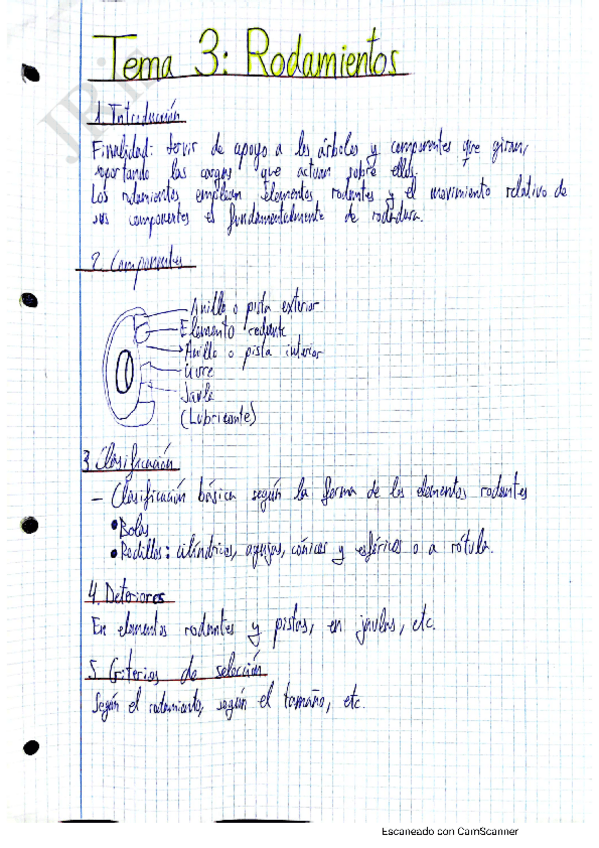 Tema 3: Rodamientos
JRi
1. Introducción
Finalidad: servir de apoyo a los árboles y componentes que giran,
soportando las cargas que actúan sobre ellos.
Los rodamientos emplean elementos rodantes y el movimiento relativo de
sus componentes es fundamentalmente de rodadura.
2. Componentes
Anillo o pista exterior
Elemento rodante
Anillo o pista interior
Jaula
(Lubricante)
3. Clasificación
- Clasificación básica según la forma de los elementos rodantes
• Bolas
• Rodillos: cilíndricos, agujas, cónicos y esféricos o a rótula.
4. Deterioros
En elementos rodantes y pistas, en jaulas, etc.
5. Criterios de selección
Según el rodamiento, según el tamaño, etc.
Escaneado con CamScanner